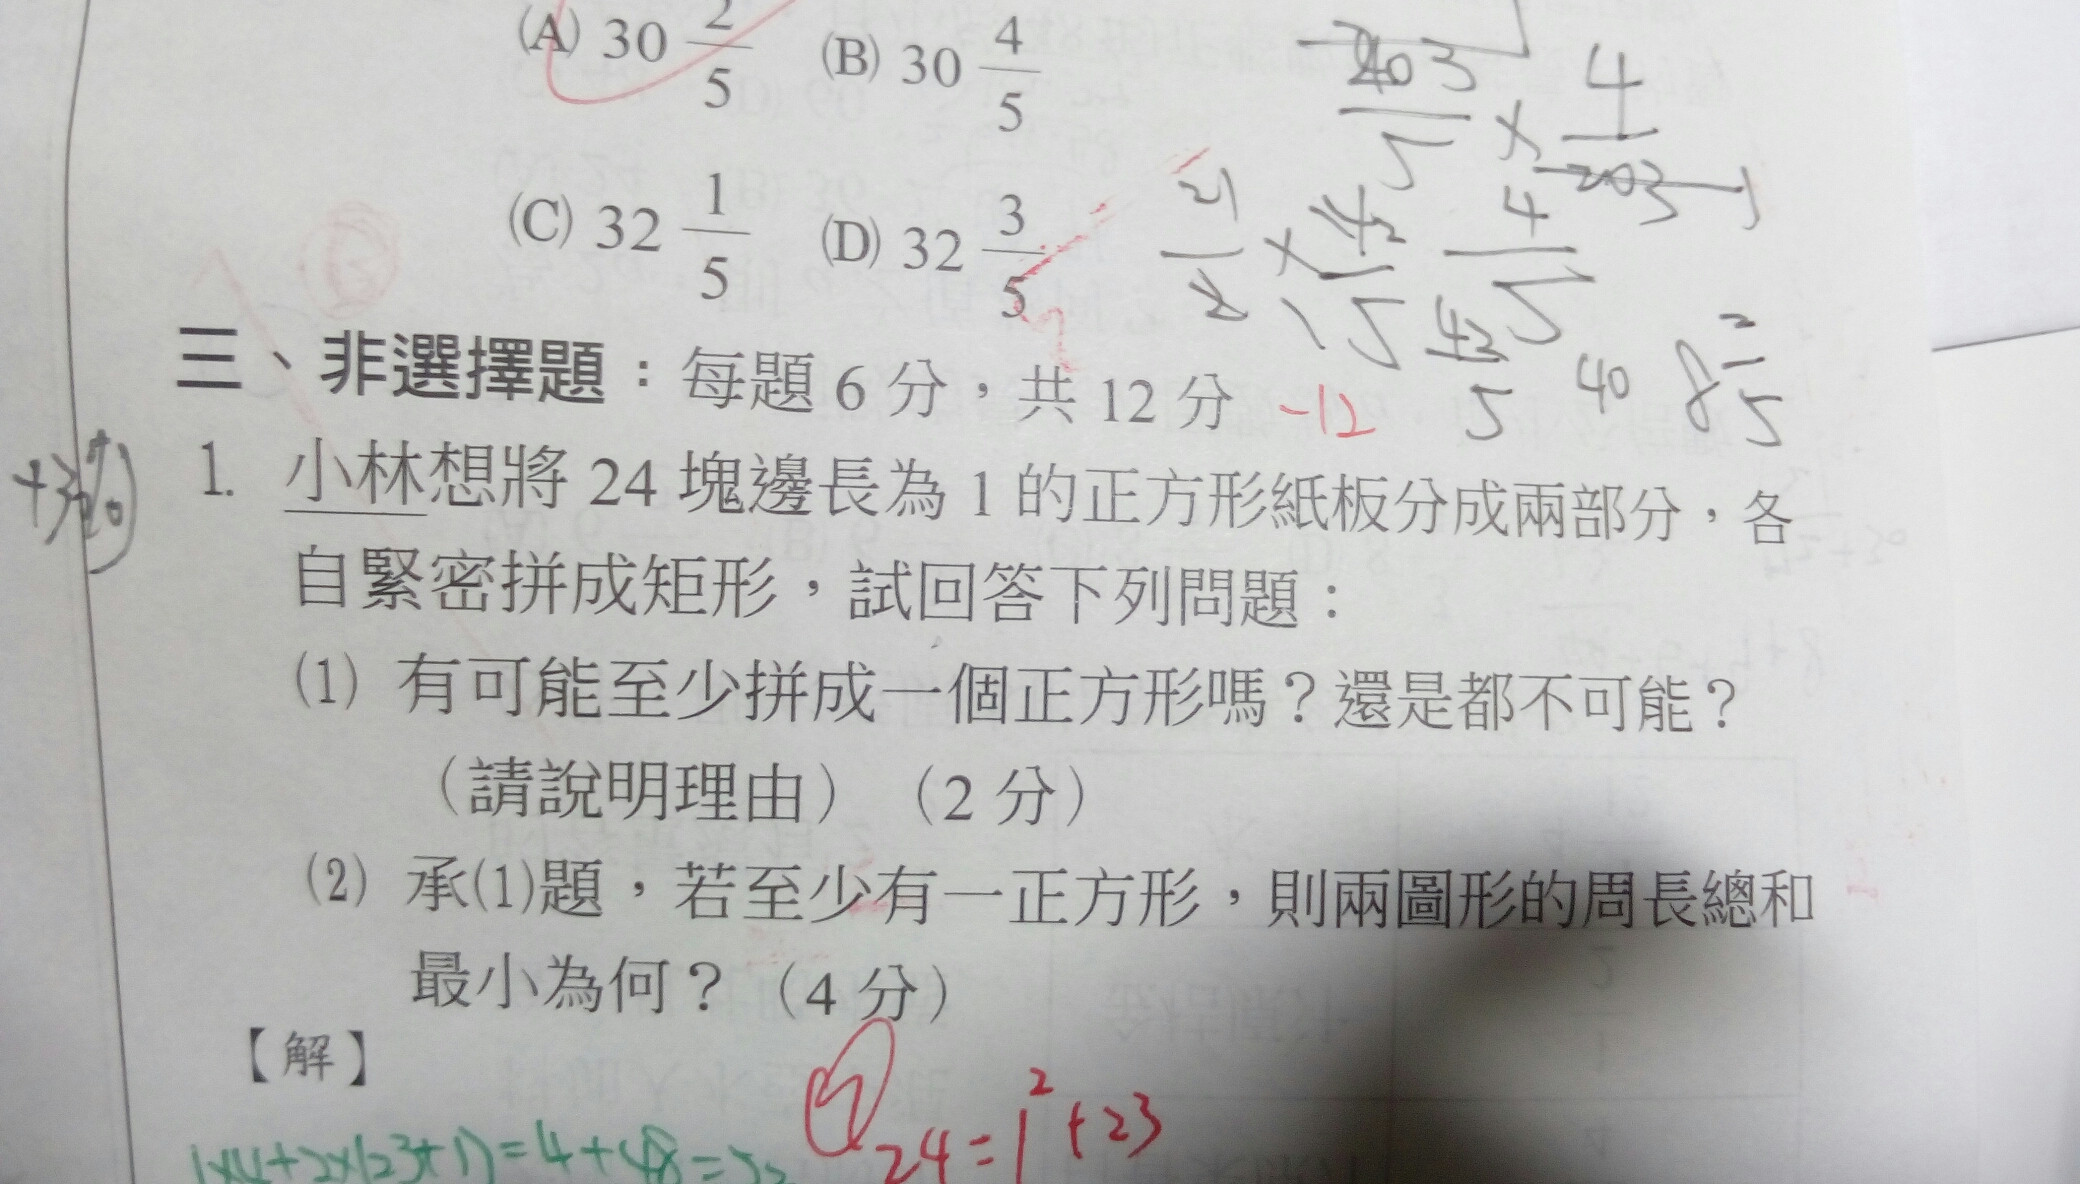 (A) 30 2/5 (B) 30 4/5
(C) 32 1/5 (D) 32 3/5
三、非選擇題：每題 6 分，共 12 分 -12
1. 小林想將 24 塊邊長為 1 的正方形紙板分成兩部分，各
自緊密拼成矩形，試回答下列問題：
(1) 有可能至少拼成一個正方形嗎？還是都不可能？
（請說明理由）（2 分）
(2) 承(1)題，若至少有一正方形，則兩圖形的周長總和
最小為何？（4 分）
【解】
24=1²+23
1×4+2×(23+1)=4+48=52